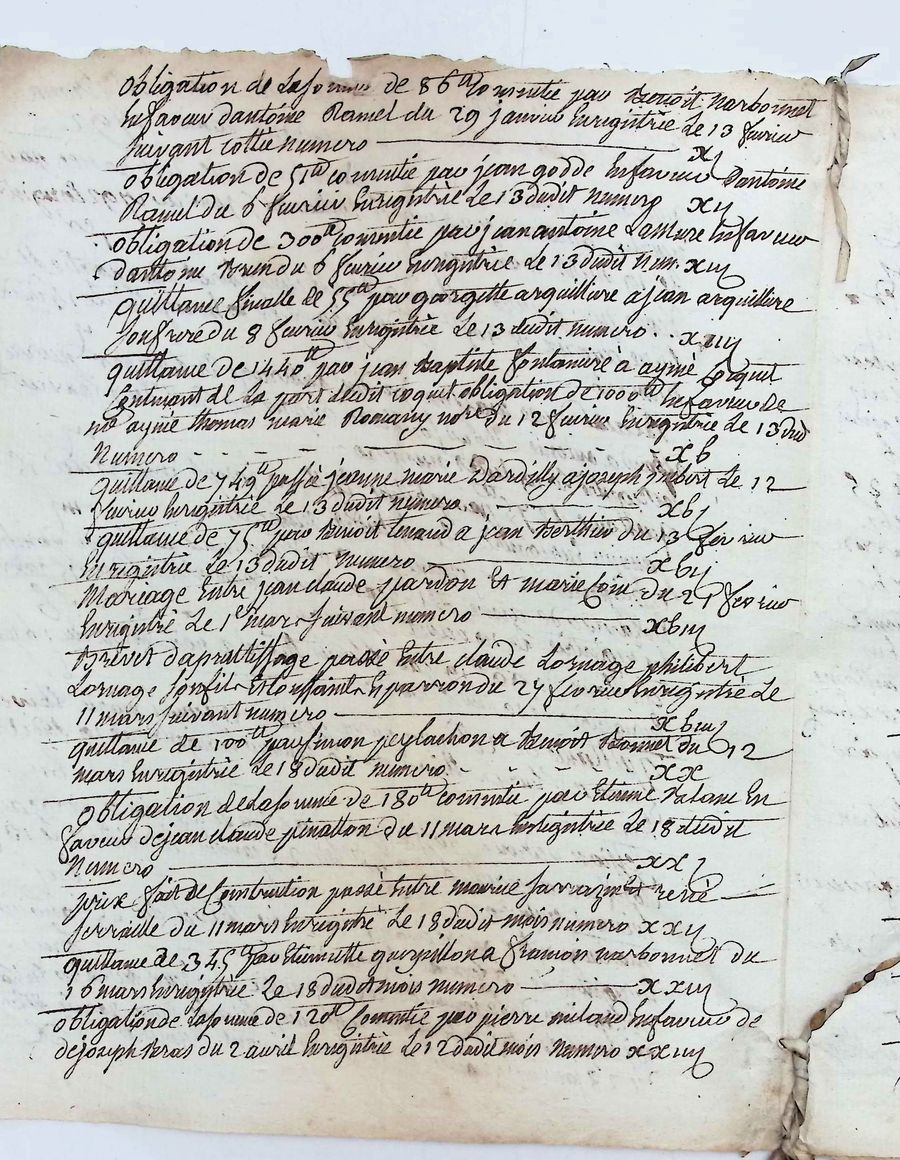 obligation de la somme de 86tt consentie par Benoit narbonnet
En faveur dantoine Ramel du 29 janvier Enregistrée Le 13 fevrier
suivant cottée numero xj
obligation de 51tt consentie par jean godde En faveur dantoine
Ramel du 6 fevrier Enregistrée Le 13 dudit numero xij
obligation de 300tt consentie par jean antoine Lamure En faveur
dantoine Brun du 6 fevrier Enregistrée Le 13 dudit num. xiij
quittance finalle de 55tt par georgette arquilliere a jean arquilliere
son frere du 8 fevrier Enregistrée Le 13 dudit numero xiiij
quittance de 1440tt par jean Baptiste fontanière à aymé Coquet
Contenant de la part dudit coquet obligation de 1000tt En faveur de
me aymé thomas marie Romany nore du 12 fevrier Enregistrée Le 13 dud
Numero xb
quittance de 749tt passée jeanne marie Dardilly a joseph jmbert Le 12
fevrier Enregistrée Le 13 dudit numero xbj
quittance de 75tt par Benoit a jean Berthier du 13 fevrier
Enregistrée Le 13 dudit Numero xbij
Mariage Entre jean claude pardon Et marie du 21 fevrier
Enregistré Le 1er mars suivant numero xbiij
Brevet daprentissage passé Entre claude Lornage philibert
Lornage son fils Et parron du 27 fevrier Enregistré Le
11 mars suivant numero xbiiij
quittance de 100tt par simon peylachon a Benoit Bonnet du 12
mars Enregistrée Le 18 dudit numero xx
obligation de la somme de 180tt consentie par Etienne En
faveur de jean claude pinatton du 11 mars Enregistrée Le 18 dudit
Numero xxj
prix fait de Construction passé Entre maurice sarrazin Et rené
serraille du 11 mars Enregistré Le 18 dudit mois numero xxij
quittance de 345tt par Etiennette guerpillon a francois narbonnet du
16 mars Enregistrée Le 18 dudit mois numero xxiij
obligation de la somme de 120tt Consentie par pierre milaud En faveur de
de joseph Bras du 2 avril Enregistrée Le 12 dudit mois Numero xxiiij